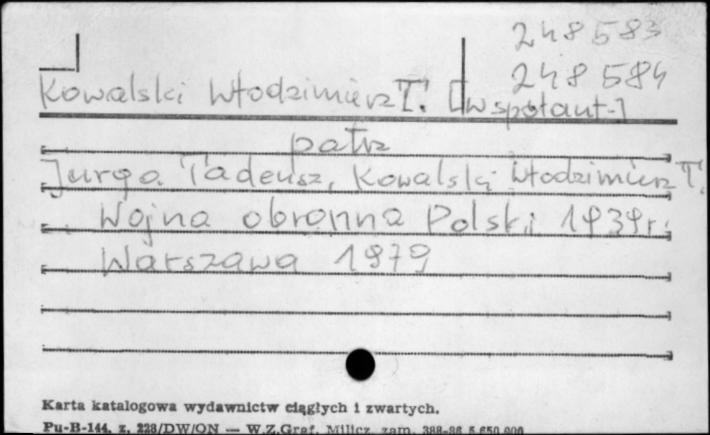 248583
248584
Kowalski Włodzimierz T. [współaut.]
patrz
Jurga Tadeusz, Kowalski Włodzimierz T.
Wojna obronna Polski 1939 r.
Warszawa 1979
Karta katalogowa wydawnictw ciągłych i zwartych.
Pu-B-144. z. 228/DW/ON — W.Z.Graf. Milicz zam. 388-86 5.650.000